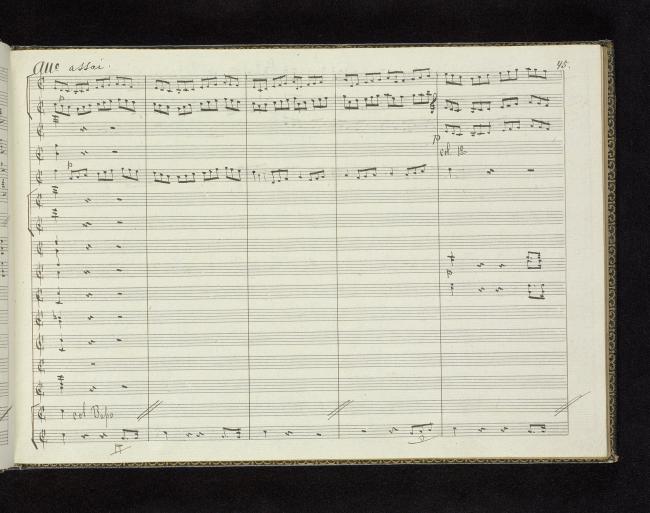 All° assai. 45.
p
p
p
col 12
p
col Basso